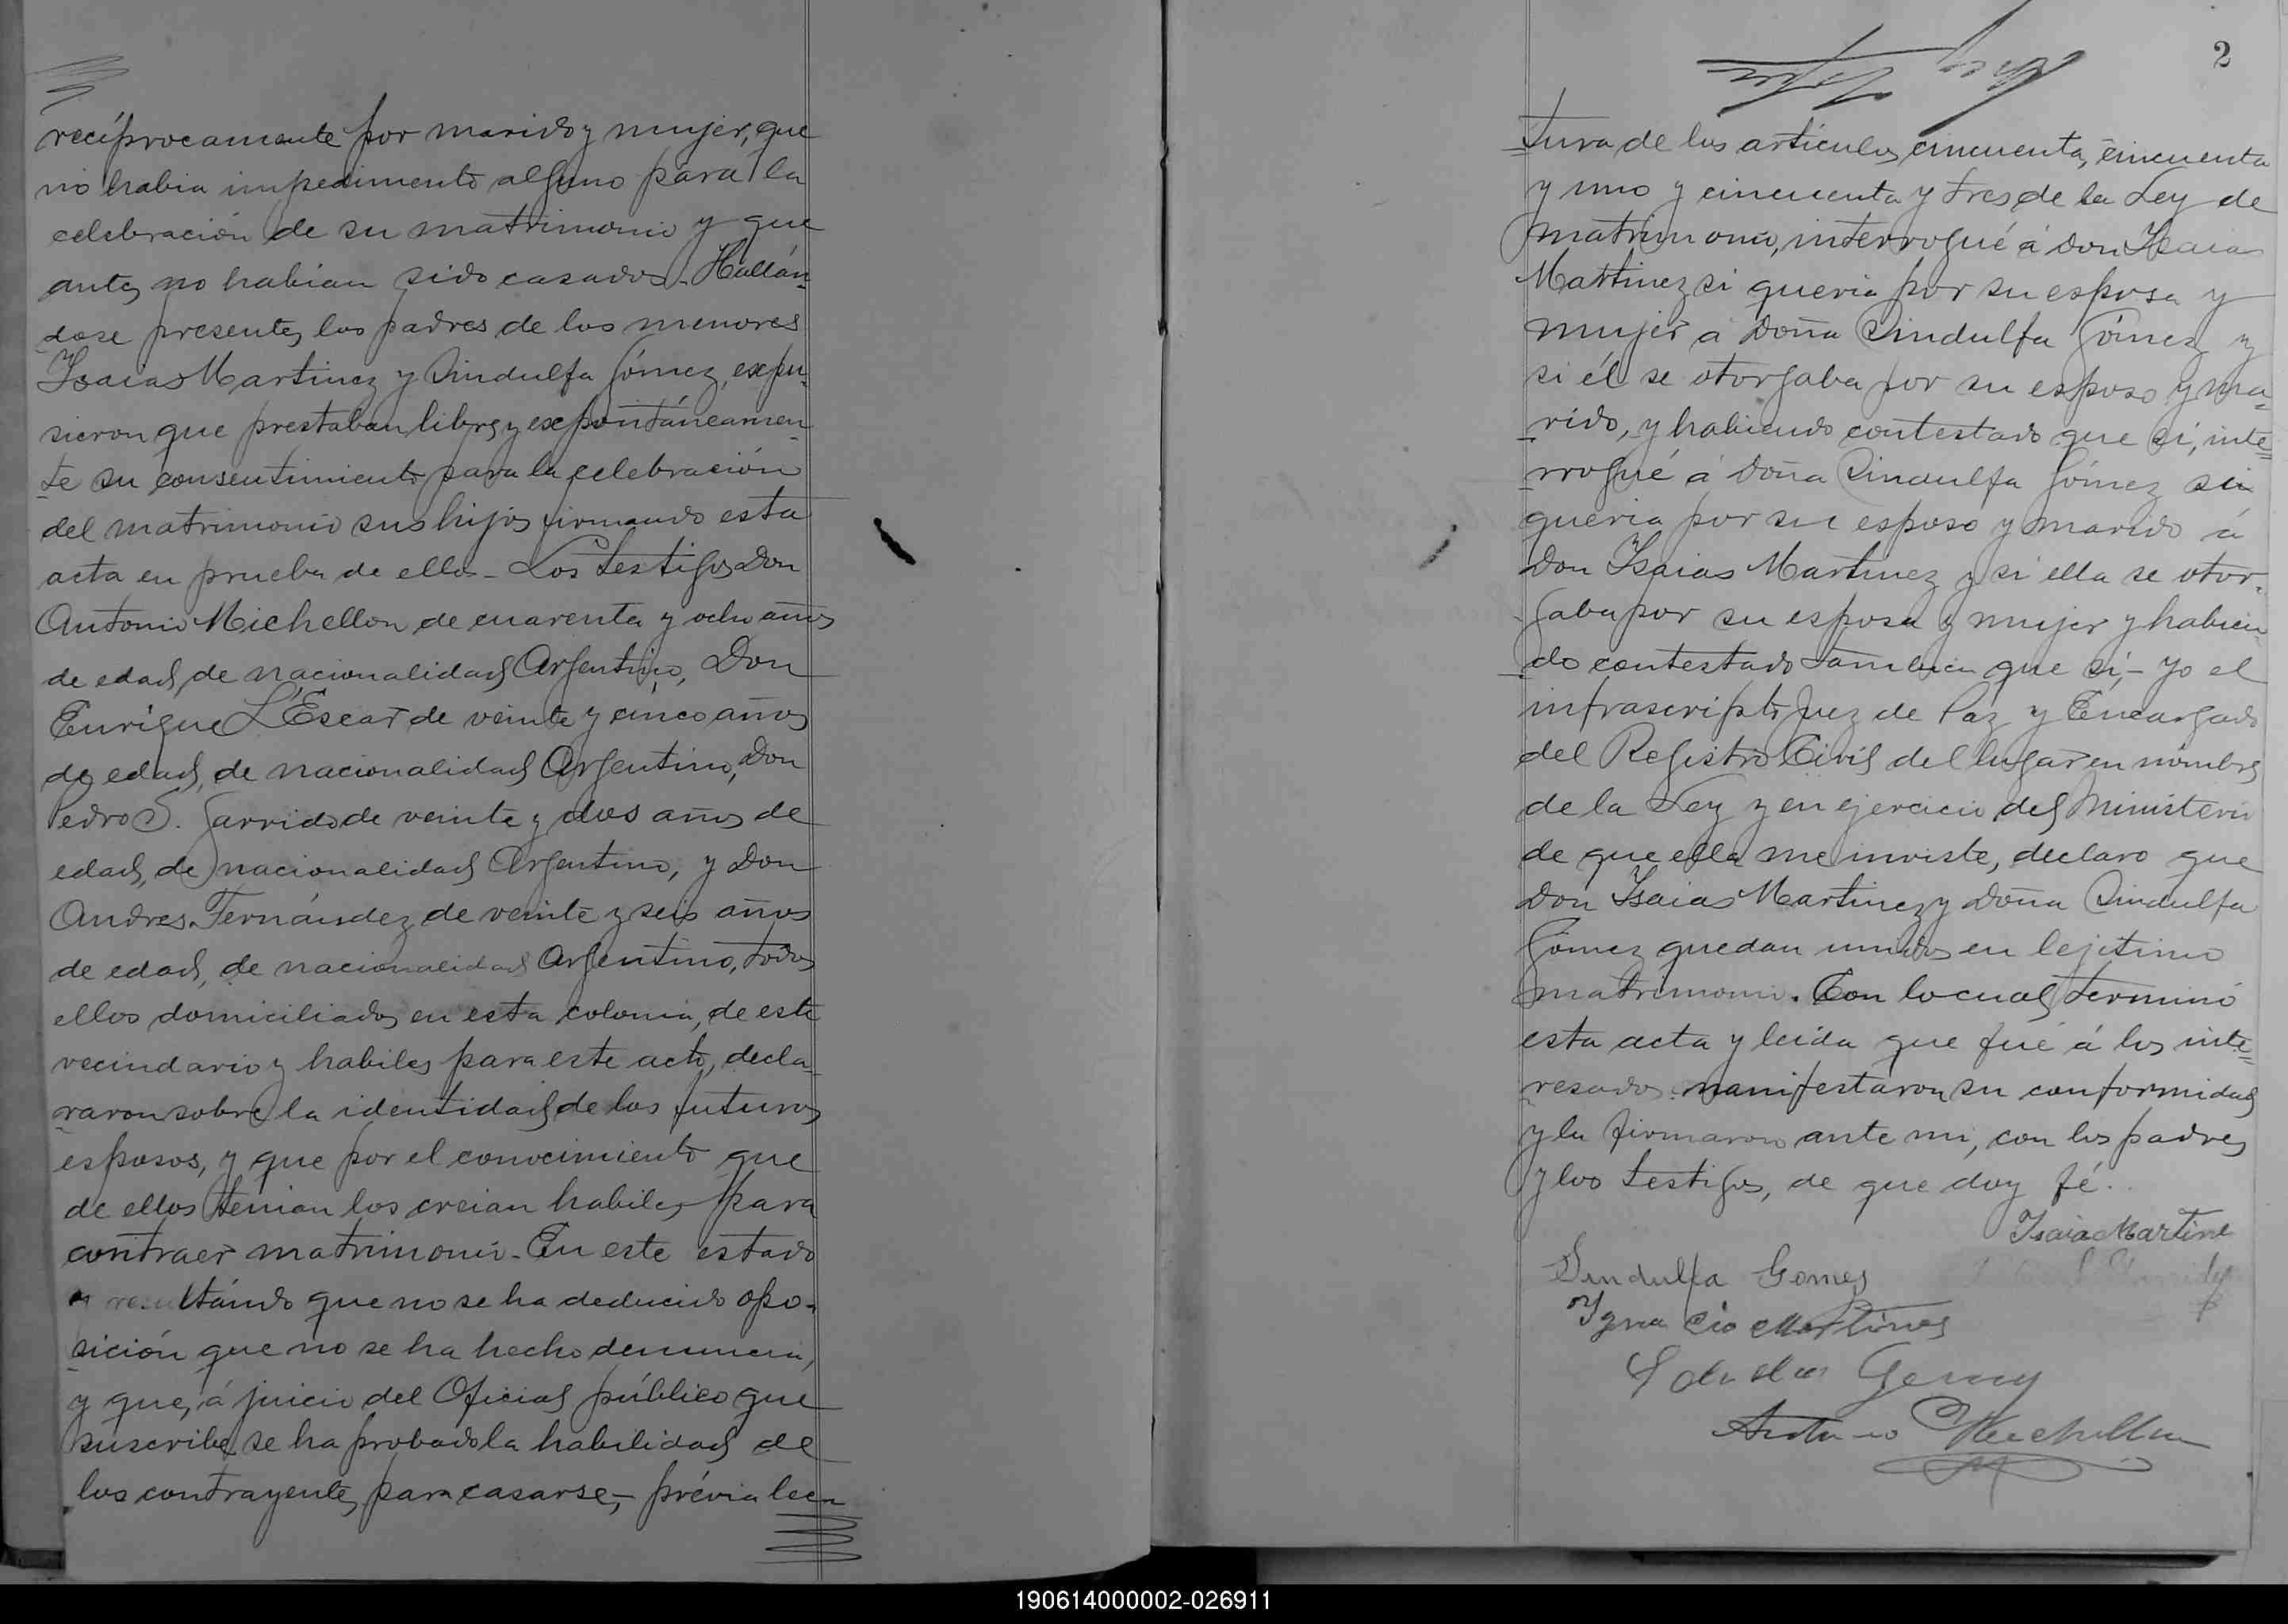 recíprocamente por marido y mujer, que
no habia impedimento alguno para la
celebración de su matrimonio y que
antes no habían sido casados. Hallán-
dose presentes los padres de los menores
Isaias Martinez y Sindulfa Gómez, expu-
sieron que prestaban libre y expontáneamen-
te su consentimiento para la celebración
del matrimonio sus hijos firmando esta
acta en prueba de ello - Los testigos Don
Antonio Michellon de cuarenta y ocho años
de edad, de nacionalidad Argentino, Don
Enrique L'Escar de veinte y cinco años
de edad, de nacionalidad Argentino, Don
Pedro S. Garrido de veinte y dos años de
edad, de nacionalidad Argentino, y Don
Andres Fernández de veinte y seis años
de edad, de nacionalidad Argentino, todos
ellos domiciliados en esta colonia, de este
vecindario y habiles para este acto, decla-
raron sobre la identidad de los futuros
esposos, y que por el conocimiento que
de ellos tenian los creian habiles para
contraer matrimonio - En este estado
y resultándo que no se ha deducido opo-
sición que no se ha hecho denuncia,
y que, á juicio del Oficial público que
suscribe, se ha probado la habilidad de
los contrayentes para casarse, - prévia lec-
2
tura de los artículos cincuenta, cincuenta
y uno y cincuenta y tres de la Ley de
matrimonio, interrogué á don Isaias
Martinez si queria por su esposa y
mujer á Doña Sindulfa Gómez y
si él se otorgaba por su esposo y ma-
rido, y habiendo contestado que sí, inte-
rrogué á Doña Sindulfa Gómez si
queria por su esposo y marido á
Don Isaias Martinez y si ella se otor-
gaba por su esposa y mujer y habien
do contestado tambien que sí, - Yo el
infrascripto Juez de Paz y Encargado
del Registro Civil del lugar en nómbre
de la Ley y en ejercicio del Ministerio
de que ella me inviste, declaro que
Don Isaias Martinez y Doña Sindulfa
Gómez quedan unidos en lejitimo
matrimonio. Con lo cual terminó
esta acta y leida que fué á los inte-
resados manifestaron su conformidad
y la firmaron ante mi, con los padres
y los testigos, de que doy fé.
Isaia Martine
Sindulfa Gomes
Ygnacio Martines
Gomez
Antonio Michellon